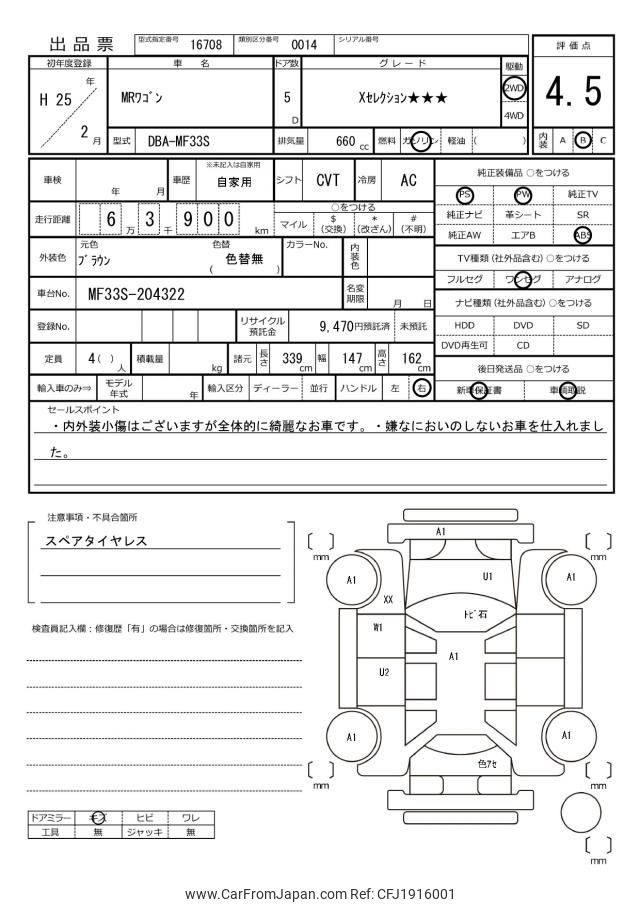 出品票 型式指定番号 16708 類別区分番号 0014 シリアル番号
評価点
4.5
内装 A B C
初年度登録 車名 ドア数 グレード 駆動
H 25 年 2 月 MRﾜｺﾞﾝ 5 D Xセレクション★★★ 2WD 4WD
型式 DBA-MF33S 排気量 660 cc 燃料 ガソリン 軽油 ( )
車検 年 月 車歴 ※未記入は自家用 自家用 シフト CVT 冷房 AC
走行距離 6 万 3 千 9 0 0 km ○をつける マイル $ (交換) * (改ざん) # (不明)
外装色 元色 ﾌﾞﾗｳﾝ 色替 ( 色替無 ) カラーNo. 内装色
車台No. MF33S-204322 名変期限 月 日
登録No. リサイクル預託金 9,470円預託済 未預託
定員 4( ) 人 積載量 kg 諸元 長さ 339 cm 幅 147 cm 高さ 162 cm
輸入車のみ⇒ モデル年式 年 輸入区分 ディーラー 並行 ハンドル 左 右
純正装備品 ○をつける
PS PW 純正TV
純正ナビ 革シート SR
純正AW エアB ABS
TV種類 (社外品含む) ○をつける
フルセグ ワンセグ アナログ
ナビ種類 (社外品含む) ○をつける
HDD DVD SD
DVD再生可 CD
後日発送品 ○をつける
新車保証書 車輌取説
セールスポイント
・内外装小傷はございますが全体的に綺麗なお車です。・嫌なにおいのしないお車を仕入れまし
た。
注意事項・不具合箇所
スペアタイヤレス
検査員記入欄：修復歴「有」の場合は修復箇所・交換箇所を記入
ドアミラー キズ ヒビ ワレ
工具 無 ジャッキ 無
mm
mm
A1
A1
U1
A1
XX
ﾄﾋﾞ石
W1
A1
U2
A1
A1
色ｱｾ
mm
mm
mm
www.CarFromJapan.com Ref: CFJ1916001